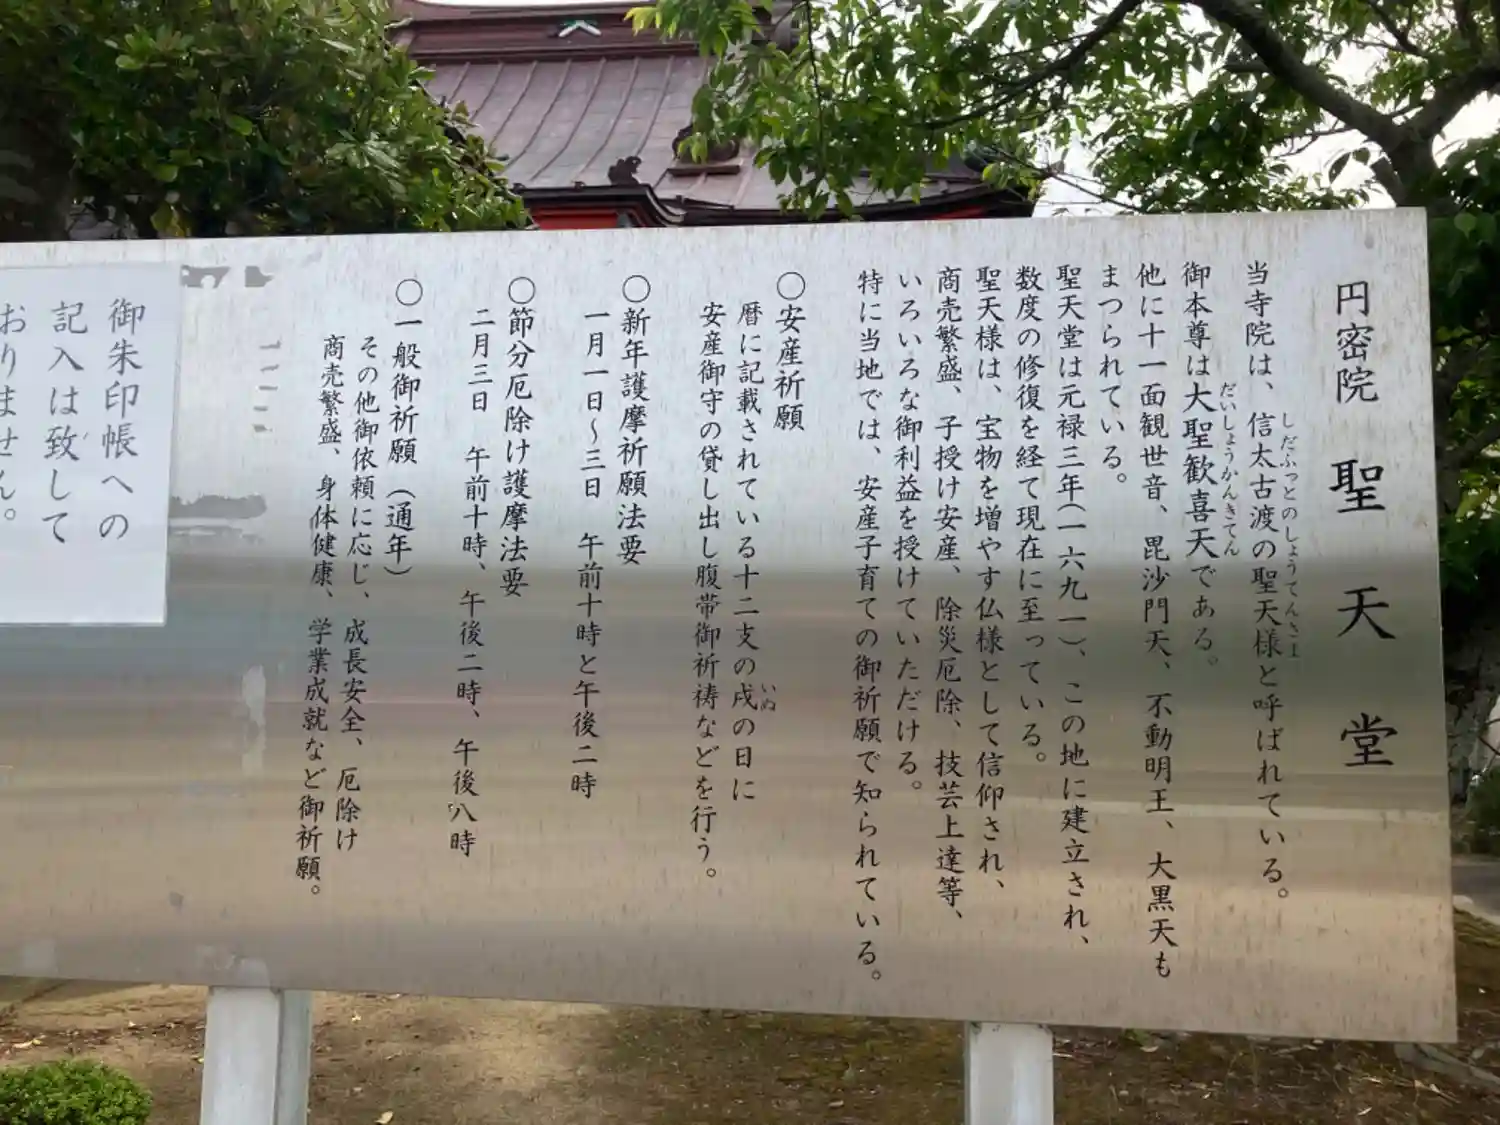 円密院 聖天堂
当寺院は、信太古渡の聖天様と呼ばれている。
しだふっとのしょうてんさま
御本尊は大聖歓喜天である。
だいしょうかんきてん
他に十一面観世音、毘沙門天、不動明王、大黒天も
まつられている。
聖天堂は元禄三年(一六九一)、この地に建立され、
数度の修復を経て現在に至っている。
聖天様は、宝物を増やす仏様として信仰され、
商売繁盛、子授け安産、除災厄除、技芸上達等、
いろいろな御利益を授けていただける。
特に当地では、安産子育ての御祈願で知られている。
〇安産祈願
暦に記載されている十二支の戌の日に
いぬ
安産御守の貸し出し腹帯御祈祷などを行う。
〇新年護摩祈願法要
一月一日〜三日 午前十時と午後二時
〇節分厄除け護摩法要
二月三日 午前十時、午後二時、午後八時
〇一般御祈願(通年)
その他御依頼に応じ、成長安全、厄除け
商売繁盛、身体健康、学業成就など御祈願。
御朱印帳への
記入は致して
おりません。